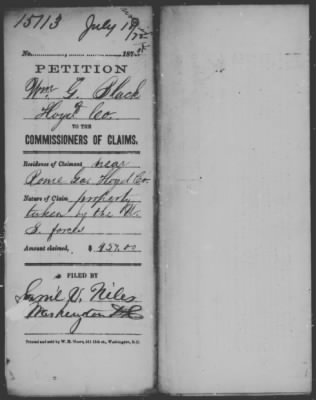 15113 July 19/72
No. , 187
PETITION
Wm. G. Black
Floyd Co.
TO THE
COMMISSIONERS OF CLAIMS.
Residence of Claimant near
Rome Ga. Floyd Co.
Nature of Claim property
taken by the U.
S. forces
Amount claimed, $ 427.00
FILED BY
Sam'l V. Niles
Washington D.C.
Printed and sold by W. H. Moore, 511 11th st., Washington, D.C.